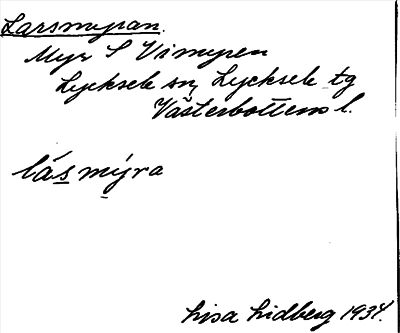 Larsmyran.
Myr S Vimyren
Lycksele sn, Lycksele tg
Västerbottens l.
lás mýra
Lisa Lidberg 1934.